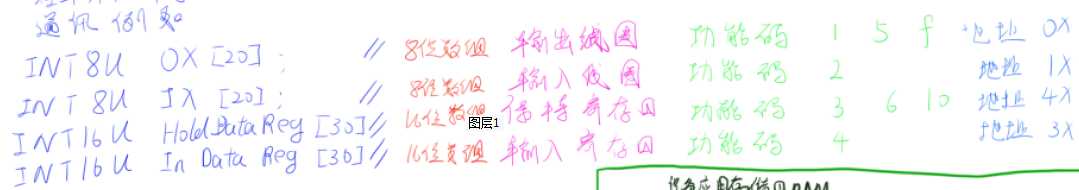 通讯例程
INT8U OX [20] ; // 8位数组 输出线圈 功能码 1 5 f 地址 0X
INT8U IX [20] ; // 8位数组 输入线圈 功能码 2 地址 1X
INT16U HoldDataReg [30] // 16位数组 保持寄存口 功能码 3 6 10 地址 4X
INT16U In Data Reg [30] // 16位数组 输入寄存口 功能码 4 地址 3X
图层1